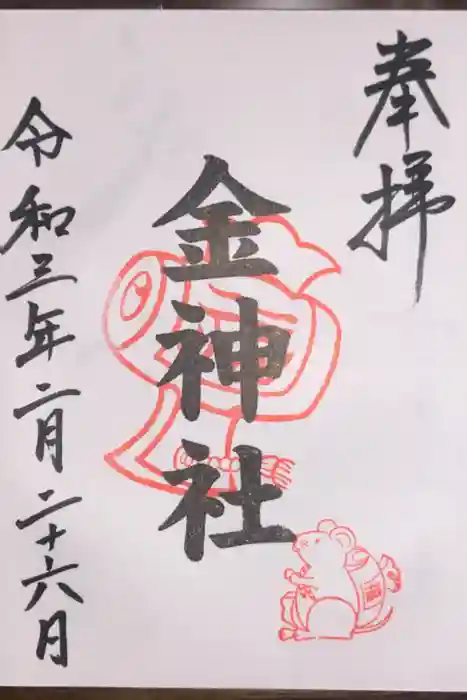 奉拝
金神社
令和三年二月二十六日